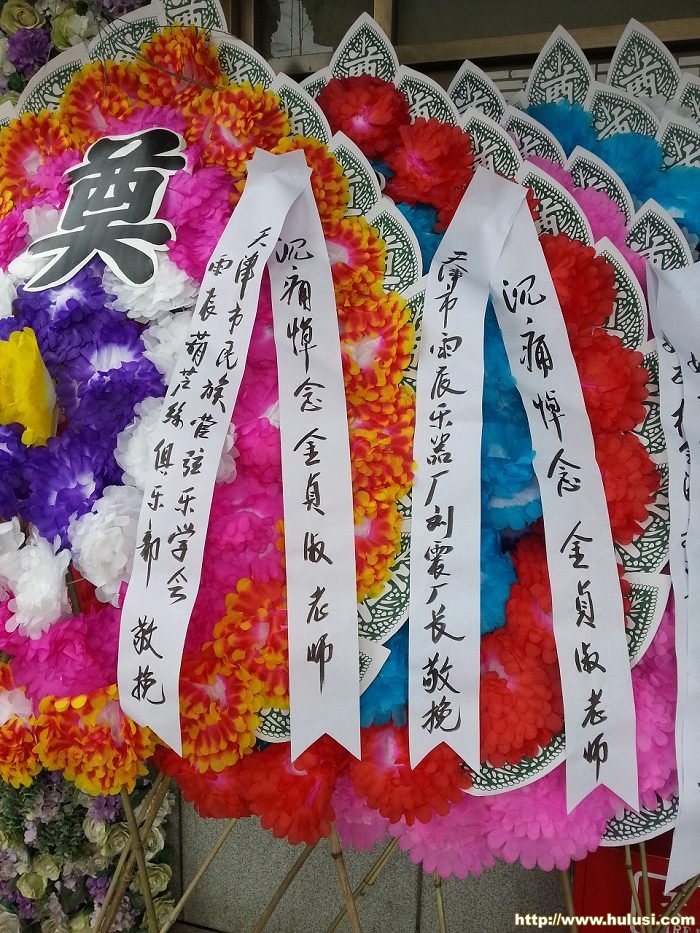 奠
沉痛悼念金贞淑老师
天津市民族管弦乐学会
雨辰葫芦丝俱乐部 敬挽
沉痛悼念 金贞淑老师
天津市雨辰乐器厂刘震厂长敬挽
http://www.hulusi.com